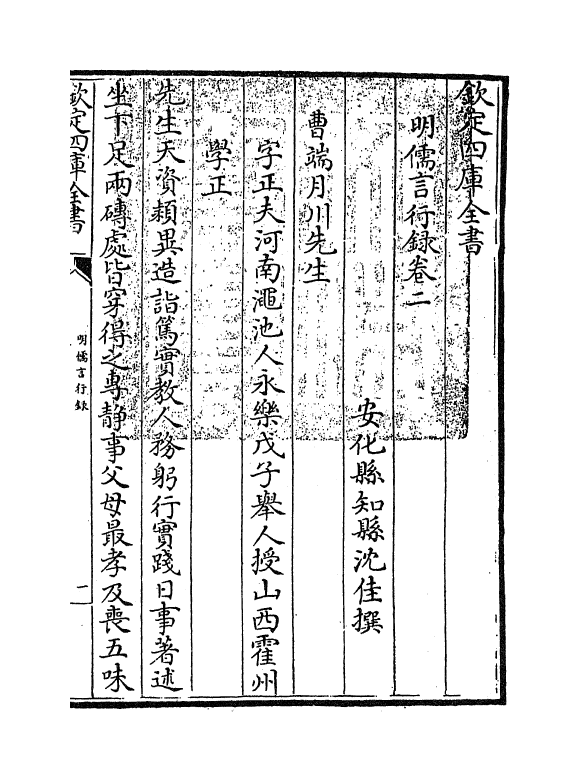 欽定四庫全書
明儒言行錄卷二
安化縣知縣沈佳撰
曹端月川先生
字正夫河南澠池人永樂戊子舉人授山西霍州
學正
先生天資穎異造詣篤實教人務躬行實踐日事著述
坐下足兩磚處皆穿得之專靜事父母最孝及喪五味
欽定四庫全書
明儒言行錄
二